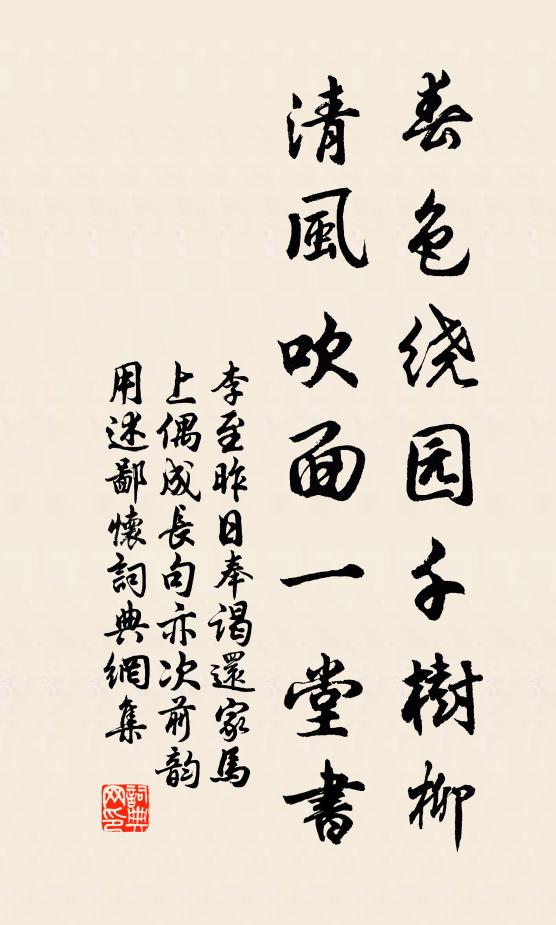 春色绕园千樹柳
清風吹面一堂書
李至昨日奉谒還家馬
上偶成長句亦次前韵
用述鄙懷詞典網集
詞典网印